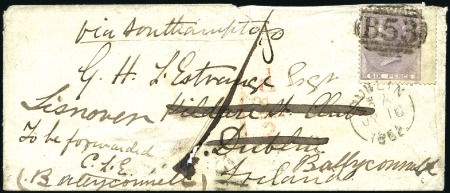 via Southampton
B53
G. H. L'Estrange Esqr
SIX PENCE
Lisnover Kildare St. Club
DUBLIN
To be forwarded Dublin
1862
C. L. E. Ballyconnell
(Ballyconnell) Ireland